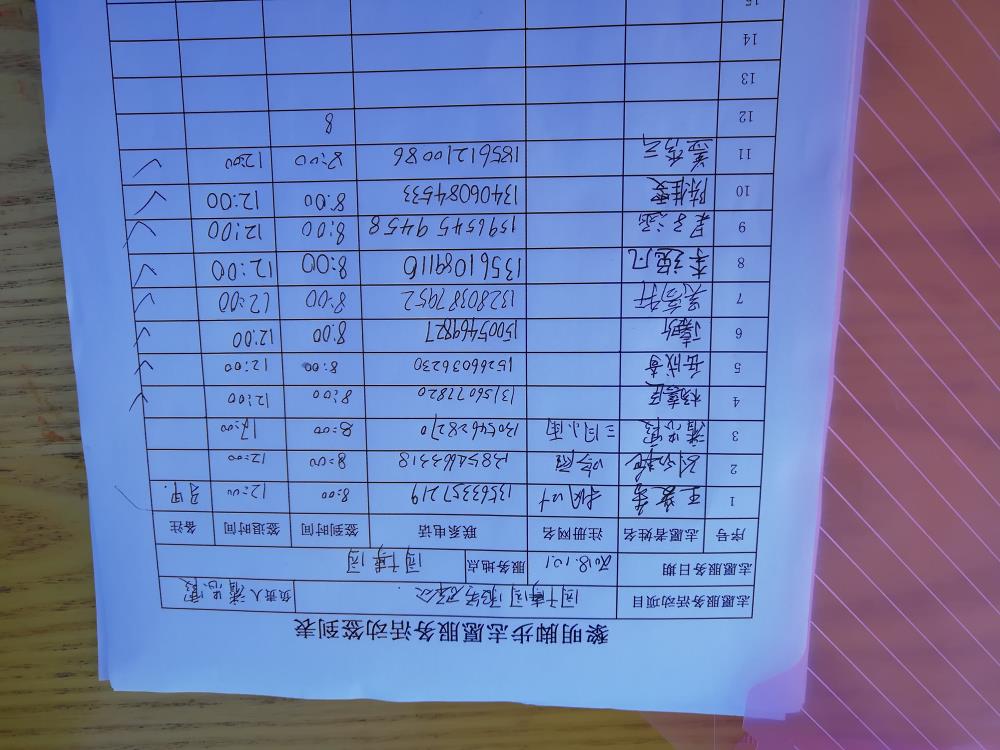 黎明脚步志愿服务活动签到表
志愿服务活动项目 园博园 负责人 潘思霞
志愿服务日期 2018.10.1 服务地点 园博园
序号 志愿者姓名 注册网名 联系电话 签到时间 签退时间 备注
1 13563357219 8:00 12:00
2 13854663318 8:00 12:00
3 潘思霞 三月小雨 13054628270 8:00 17:00
4 13156077820 8:00 12:00
5 岳成奇 15266036230 8:00 12:00
6 15005469827 8:00 12:00
7 13280387952 8:00 12:00
8 李漫凡 13561089110 8:00 12:00
9 15965459458 8:00 12:00
10 陈佳雯 13406084533 8:00 12:00
11 18561210086 8:00 12:00
12 8
13
14
15